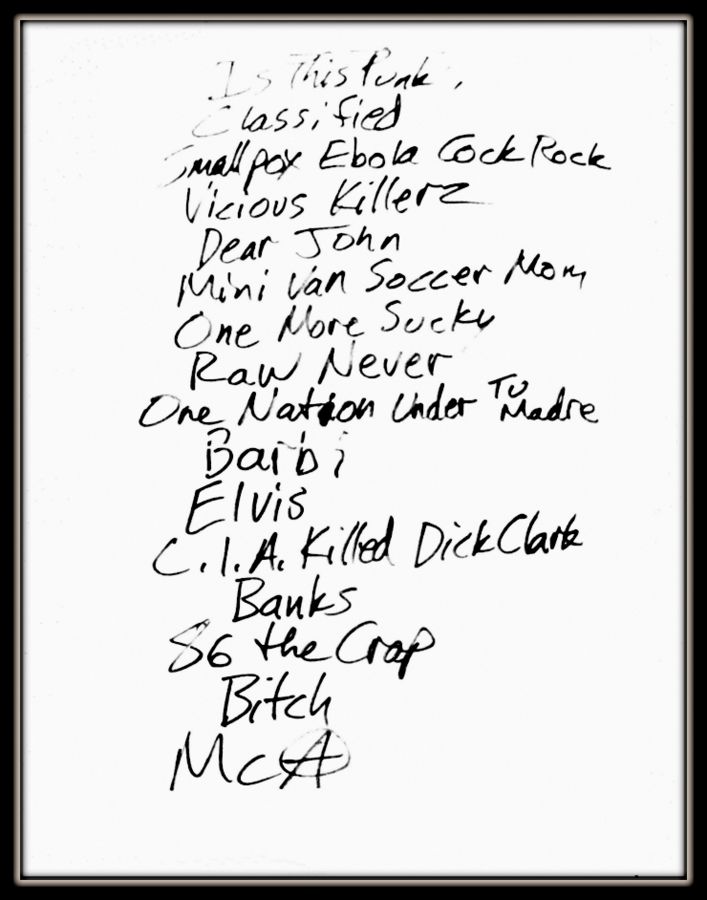 Is This Punk,
Classified
Smallpox Ebola Cock Rock
Vicious Killerz
Dear John
Mini Van Soccer Mom
One More Sucky
Raw Never
One Nation Under Tu Madre
Barbi
Elvis
C.I.A. Killed Dick Clark
Banks
86 the Crap
Bitch
McA